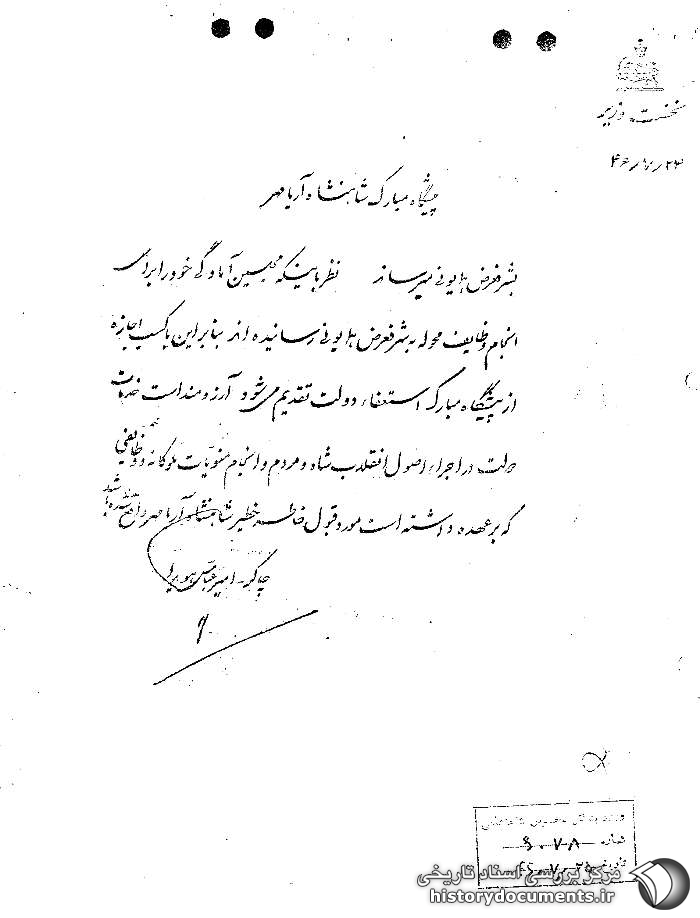 نخست وزیر
۴۶/۷/۲۳
پیشگاه مبارک شاهنشاه آریامهر
بشرفعرض همایونی میرساند نظر باینکه مجلسین آمادگی خود را برای
انجام وظایف محوله بشرفعرض همایونی رسانیده اند بنابراین با کسب اجازه
از پیشگاه مبارک استعفاء دولت تقدیم می شود آرزومند است خدمات
دولت در اجراء اصول انقلاب شاه و مردم و انجام منویات ملوکانه و وظایفی
که بر عهده داشته است مورد قبول خاطر خطیر شاهنشاه آریامهر واقع شده باشد
چاکر - امیرعباس هویدا
شماره ۶۰۷۸
تاریخ ۴۶-۷-۲۵
مرکز بررسی اسناد تاریخی
historydocuments.ir